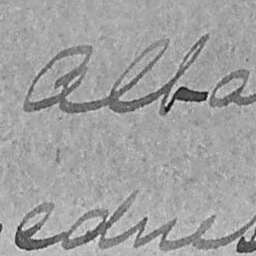 Alba
ednes